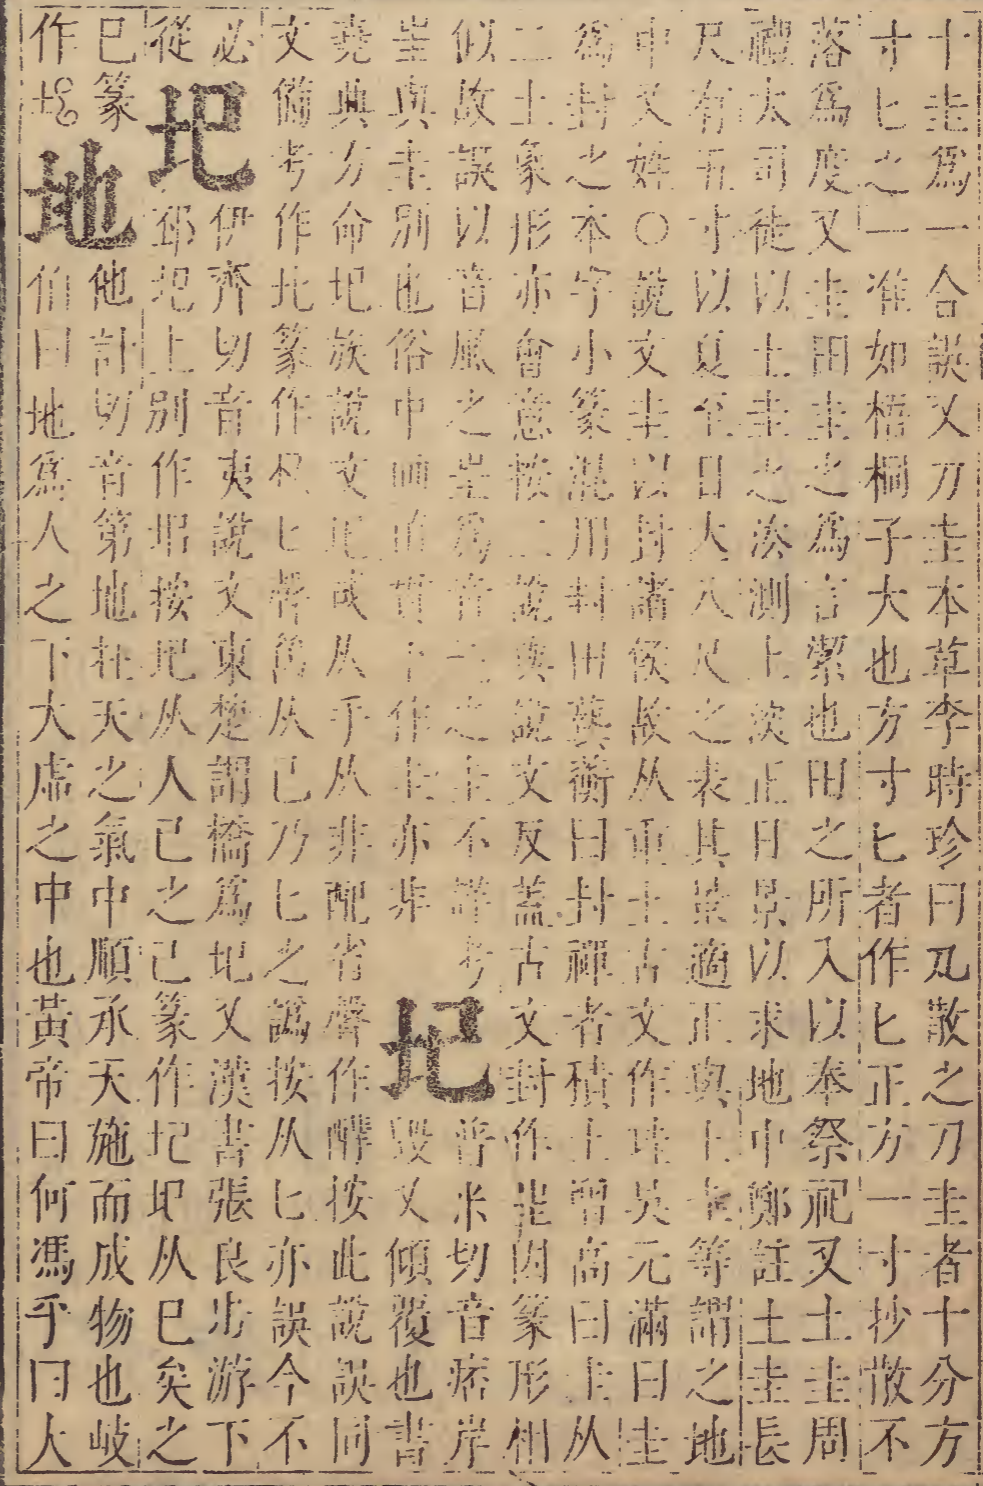 十圭爲一合誤又刀圭本草李時珍曰凡散之刀圭者十分方
寸匕之一准如梧桐子大也方寸匕者作匕正方一寸抄散不
落爲度又圭田圭之爲言潔也田之所入以奉祭祀又土圭周
禮太司徒以土圭之法測土深正日景以求地中鄭註土圭長
尺有五寸以夏至日大八尺之表其景適正與土圭等謂之地
中又姓○說文圭以封諸侯故从重土古文作珪吳元滿曰圭
爲封之本字小篆混用封田蔡衡曰封禪者積土增高曰圭从
二土象形亦會意按二說與說文反蓋古文封作𡉚因篆形相
似故誤以音風之崖爲音之圭不詳考
崖與圭別也俗中作圭亦非
圮 普米切音痞岸毀又傾覆也書
堯典方命圮族說文圮或从手从非配省聲作𨻃按此說誤同
文備考作北篆作匕聲僞从己乃匕之譌按从匕亦誤今不
必伊齊切音夷說文東楚謂橋爲圯又漢書張良步游下
從
圯
邳圯上別作圯按圯从人已之已篆作圯圯从巳矣之
巳篆他計切音第地在天之氣中順承天施而成物也岐
作
地
伯曰地爲人之下大虛之中也黃帝曰何馮乎曰大